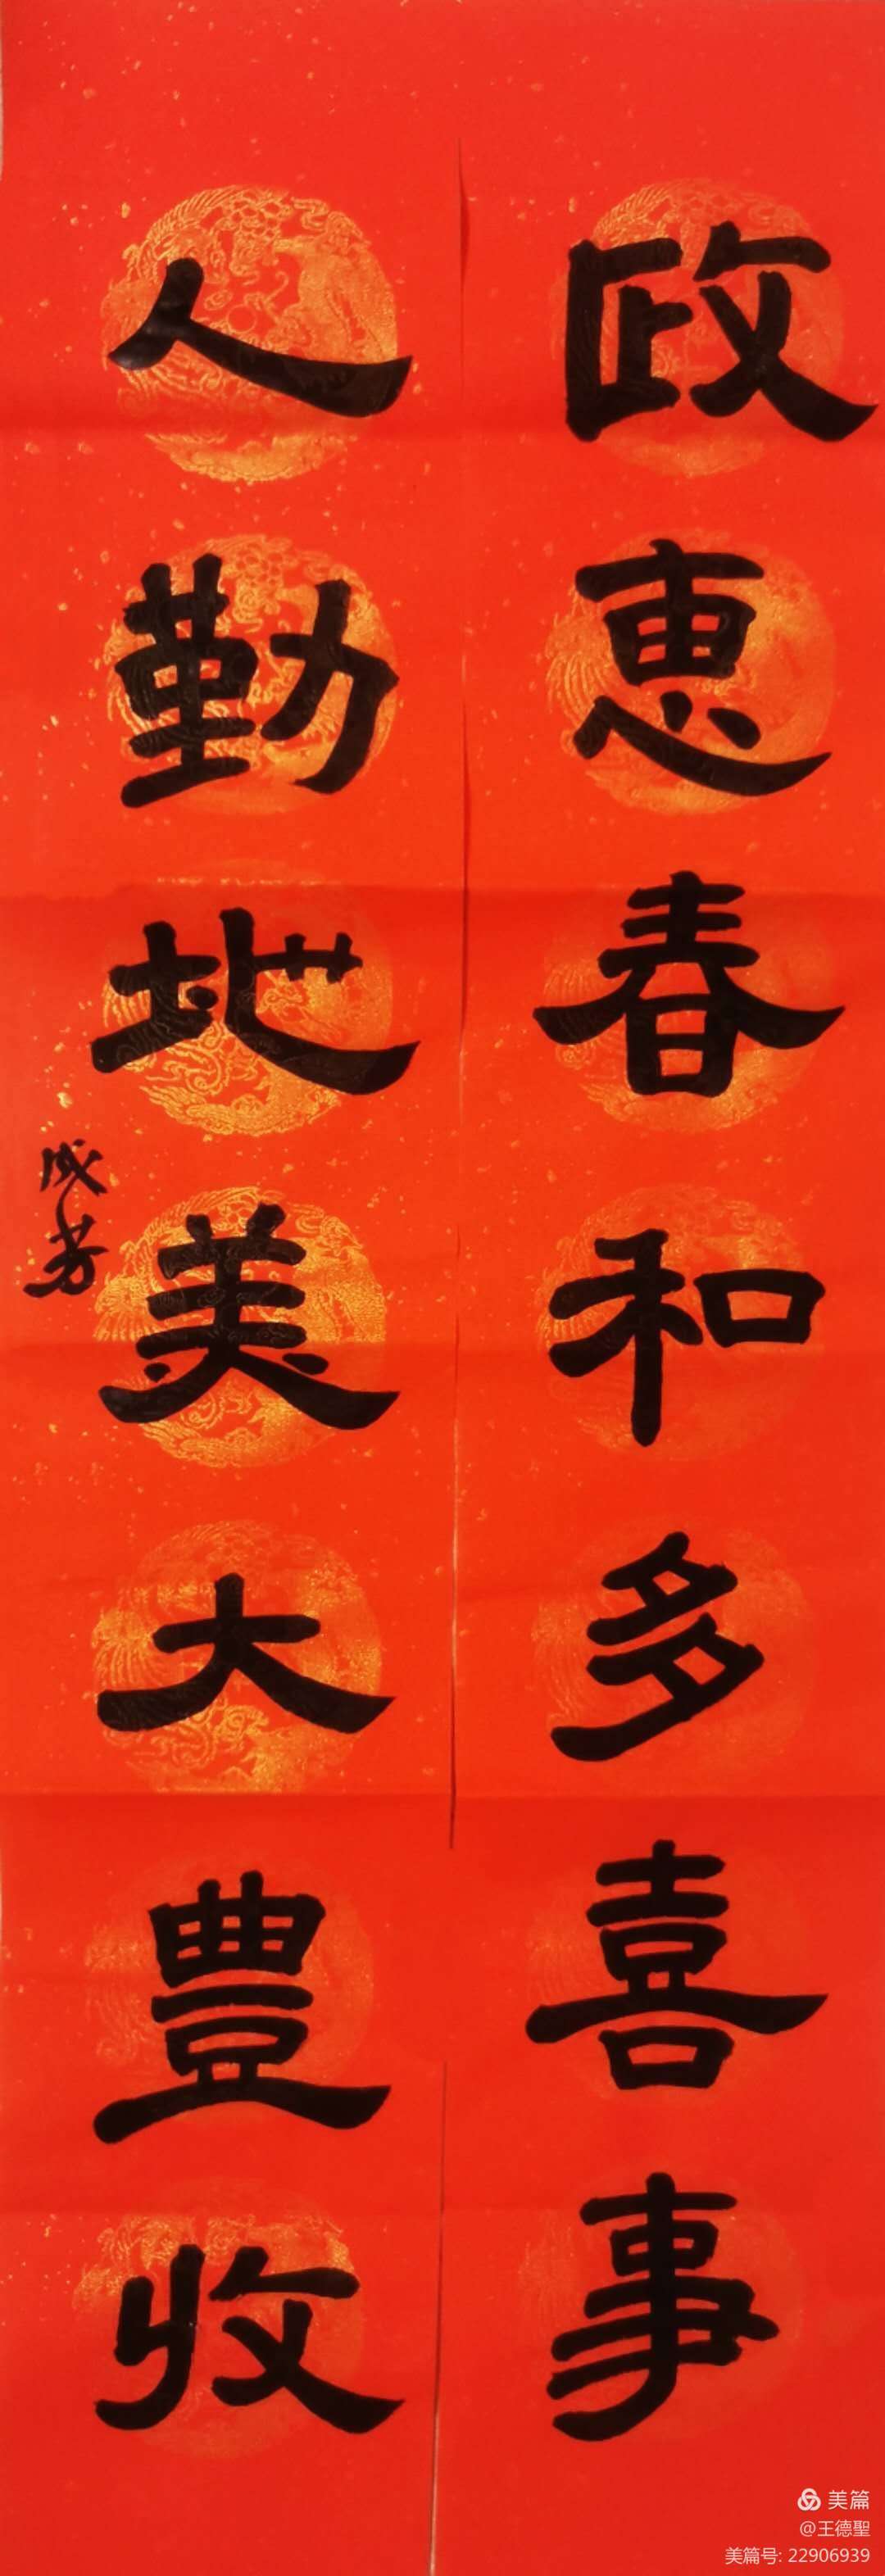 政惠春和多喜事
人勤地美大豐收
成芳
美篇
@王德聖
美篇号: 22906939